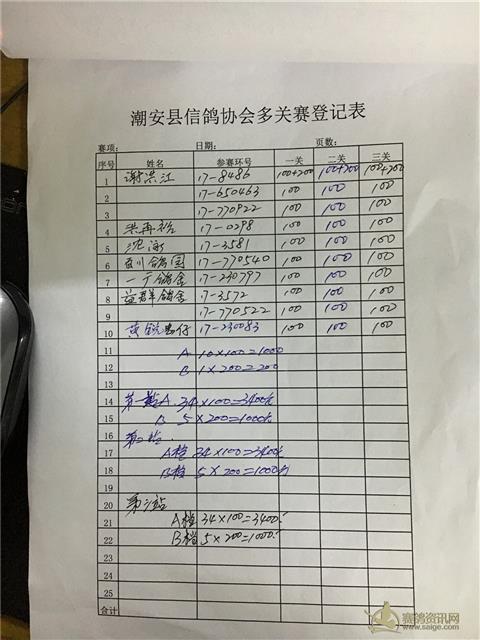 潮安县信鸽协会多关赛登记表
赛项： 日期： 页数：
序号 姓名 参赛环号 一关 二关 三关
1 谢洪江 17-8486 100+200 100+200 100+200
2 17-650463 100 100 100
3 17-770922 100 100 100
4 洪再裕 17-0298 100 100 100
5 沈泳 17-3581 100 100 100
6 百川鸽园 17-770540 100 100 100
7 一广鸽舍 17-230797 100 100 100
8 益群鸽舍 17-3572 100 100 100
9 17-770522 100 100 100
10 黄锐 仔 17-230083 100 100 100
11 A 10×100=1000
12 B 1×200=200
13
14 第一 A. 34×100=3400
15 B 5×200=1000
16 第二
17 A档 34×100=3400
18 B档 5×200=1000
19
20 第三站
21 A档 34×100=3400
22 B档 5×200=1000
23
24
25
合计
赛鸽资讯网
www.saige.com